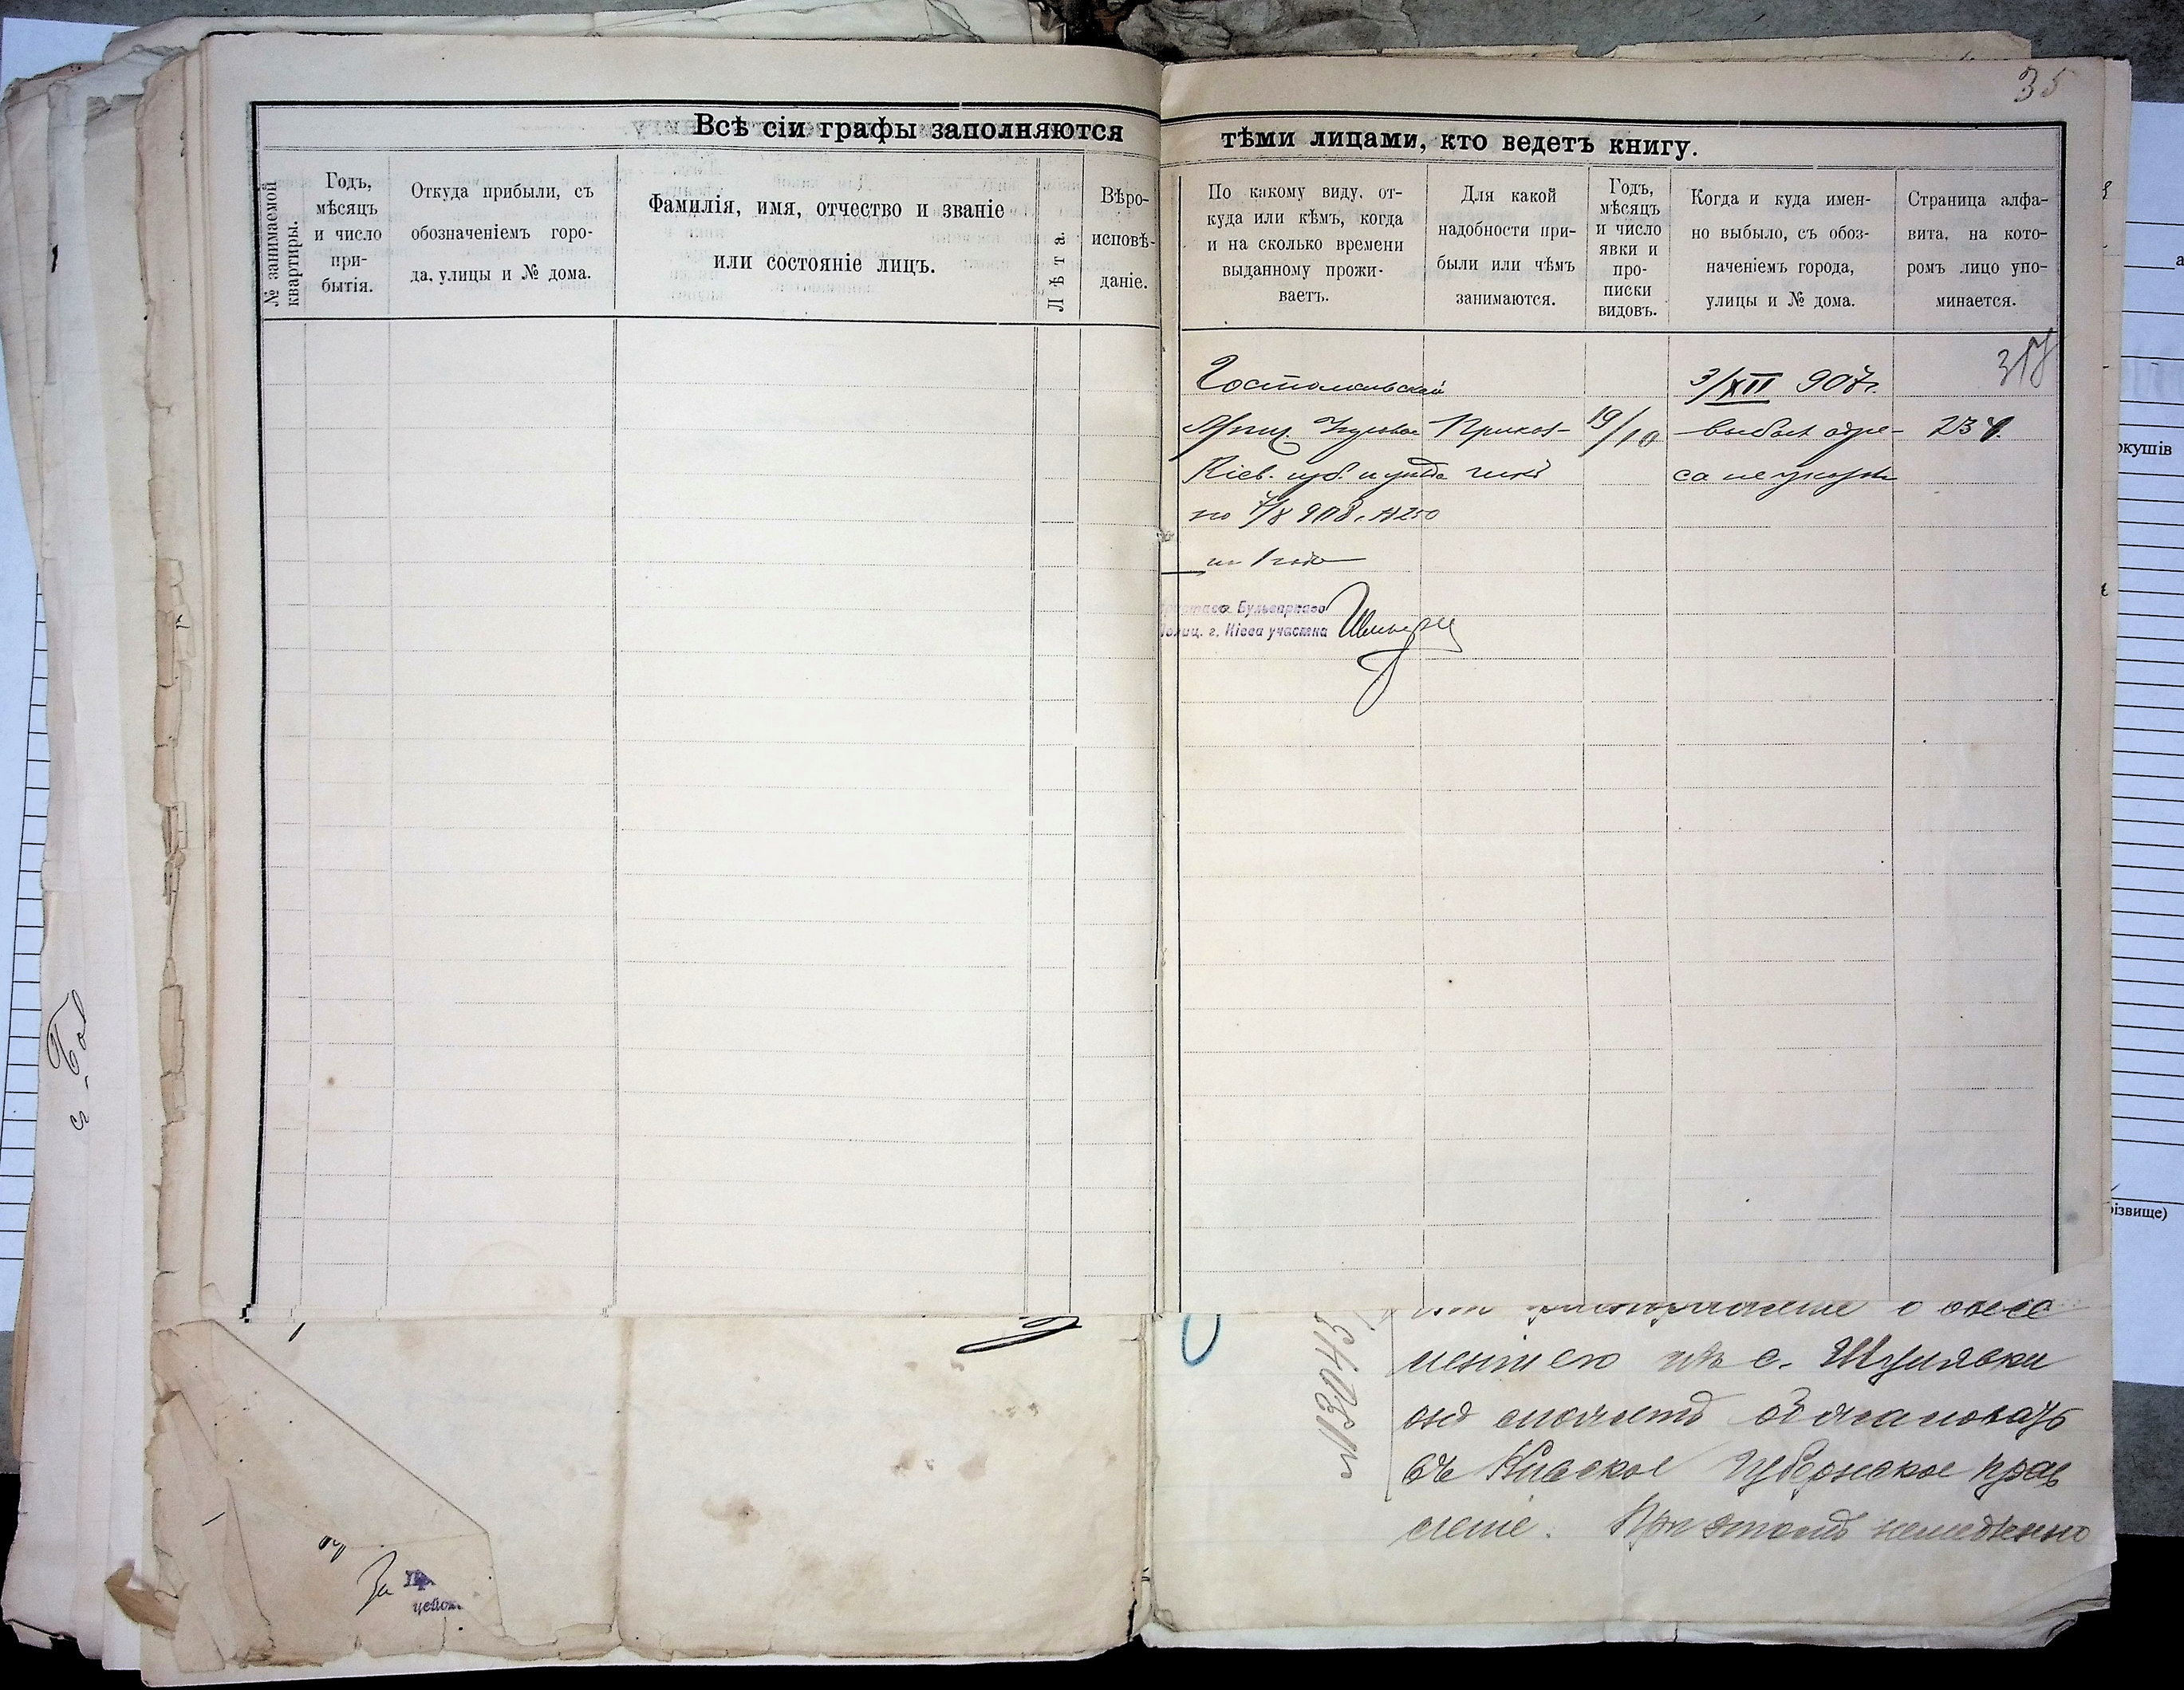 35
Всѣ сіи графы заполняются
тѣми лицами, кто ведетъ книгу.
№ занимаемой
квартиры.
Годъ,
мѣсяцъ
и число
при-
бытія.
Откуда прибыли, съ
обозначеніемъ горо-
да, улицы и № дома.
Фамилія, имя, отчество и званіе
или состояніе лицъ.
Лѣта.
Вѣро-
исповѣ-
даніе.
По какому виду, от-
куда или кѣмъ, когда
и на сколько времени
выданному прожи-
ваетъ.
Для какой
надобности при-
были или чѣмъ
занимаются.
Годъ,
мѣсяцъ
и число
явки и
про-
писки
видовъ.
Когда и куда имен-
но выбыло, съ обоз-
наченіемъ города,
улицы и № дома.
Страница алфа-
вита, на кото-
ромъ лицо упо-
минается.
Гостомельской
Кіев. губ. и уѣзда
на 1 годъ
Приказ-
чикъ
19/10
3/XII 907г.
выбыл адре-
са не
Бульварнаго
Полиц. г. Кіева участка
№13045
о высе
изъ с. Шулявки
онъ можетъ обжаловать
въ Киевское Губернское прав
ление. При этомъ
За
аркушів
різвище)